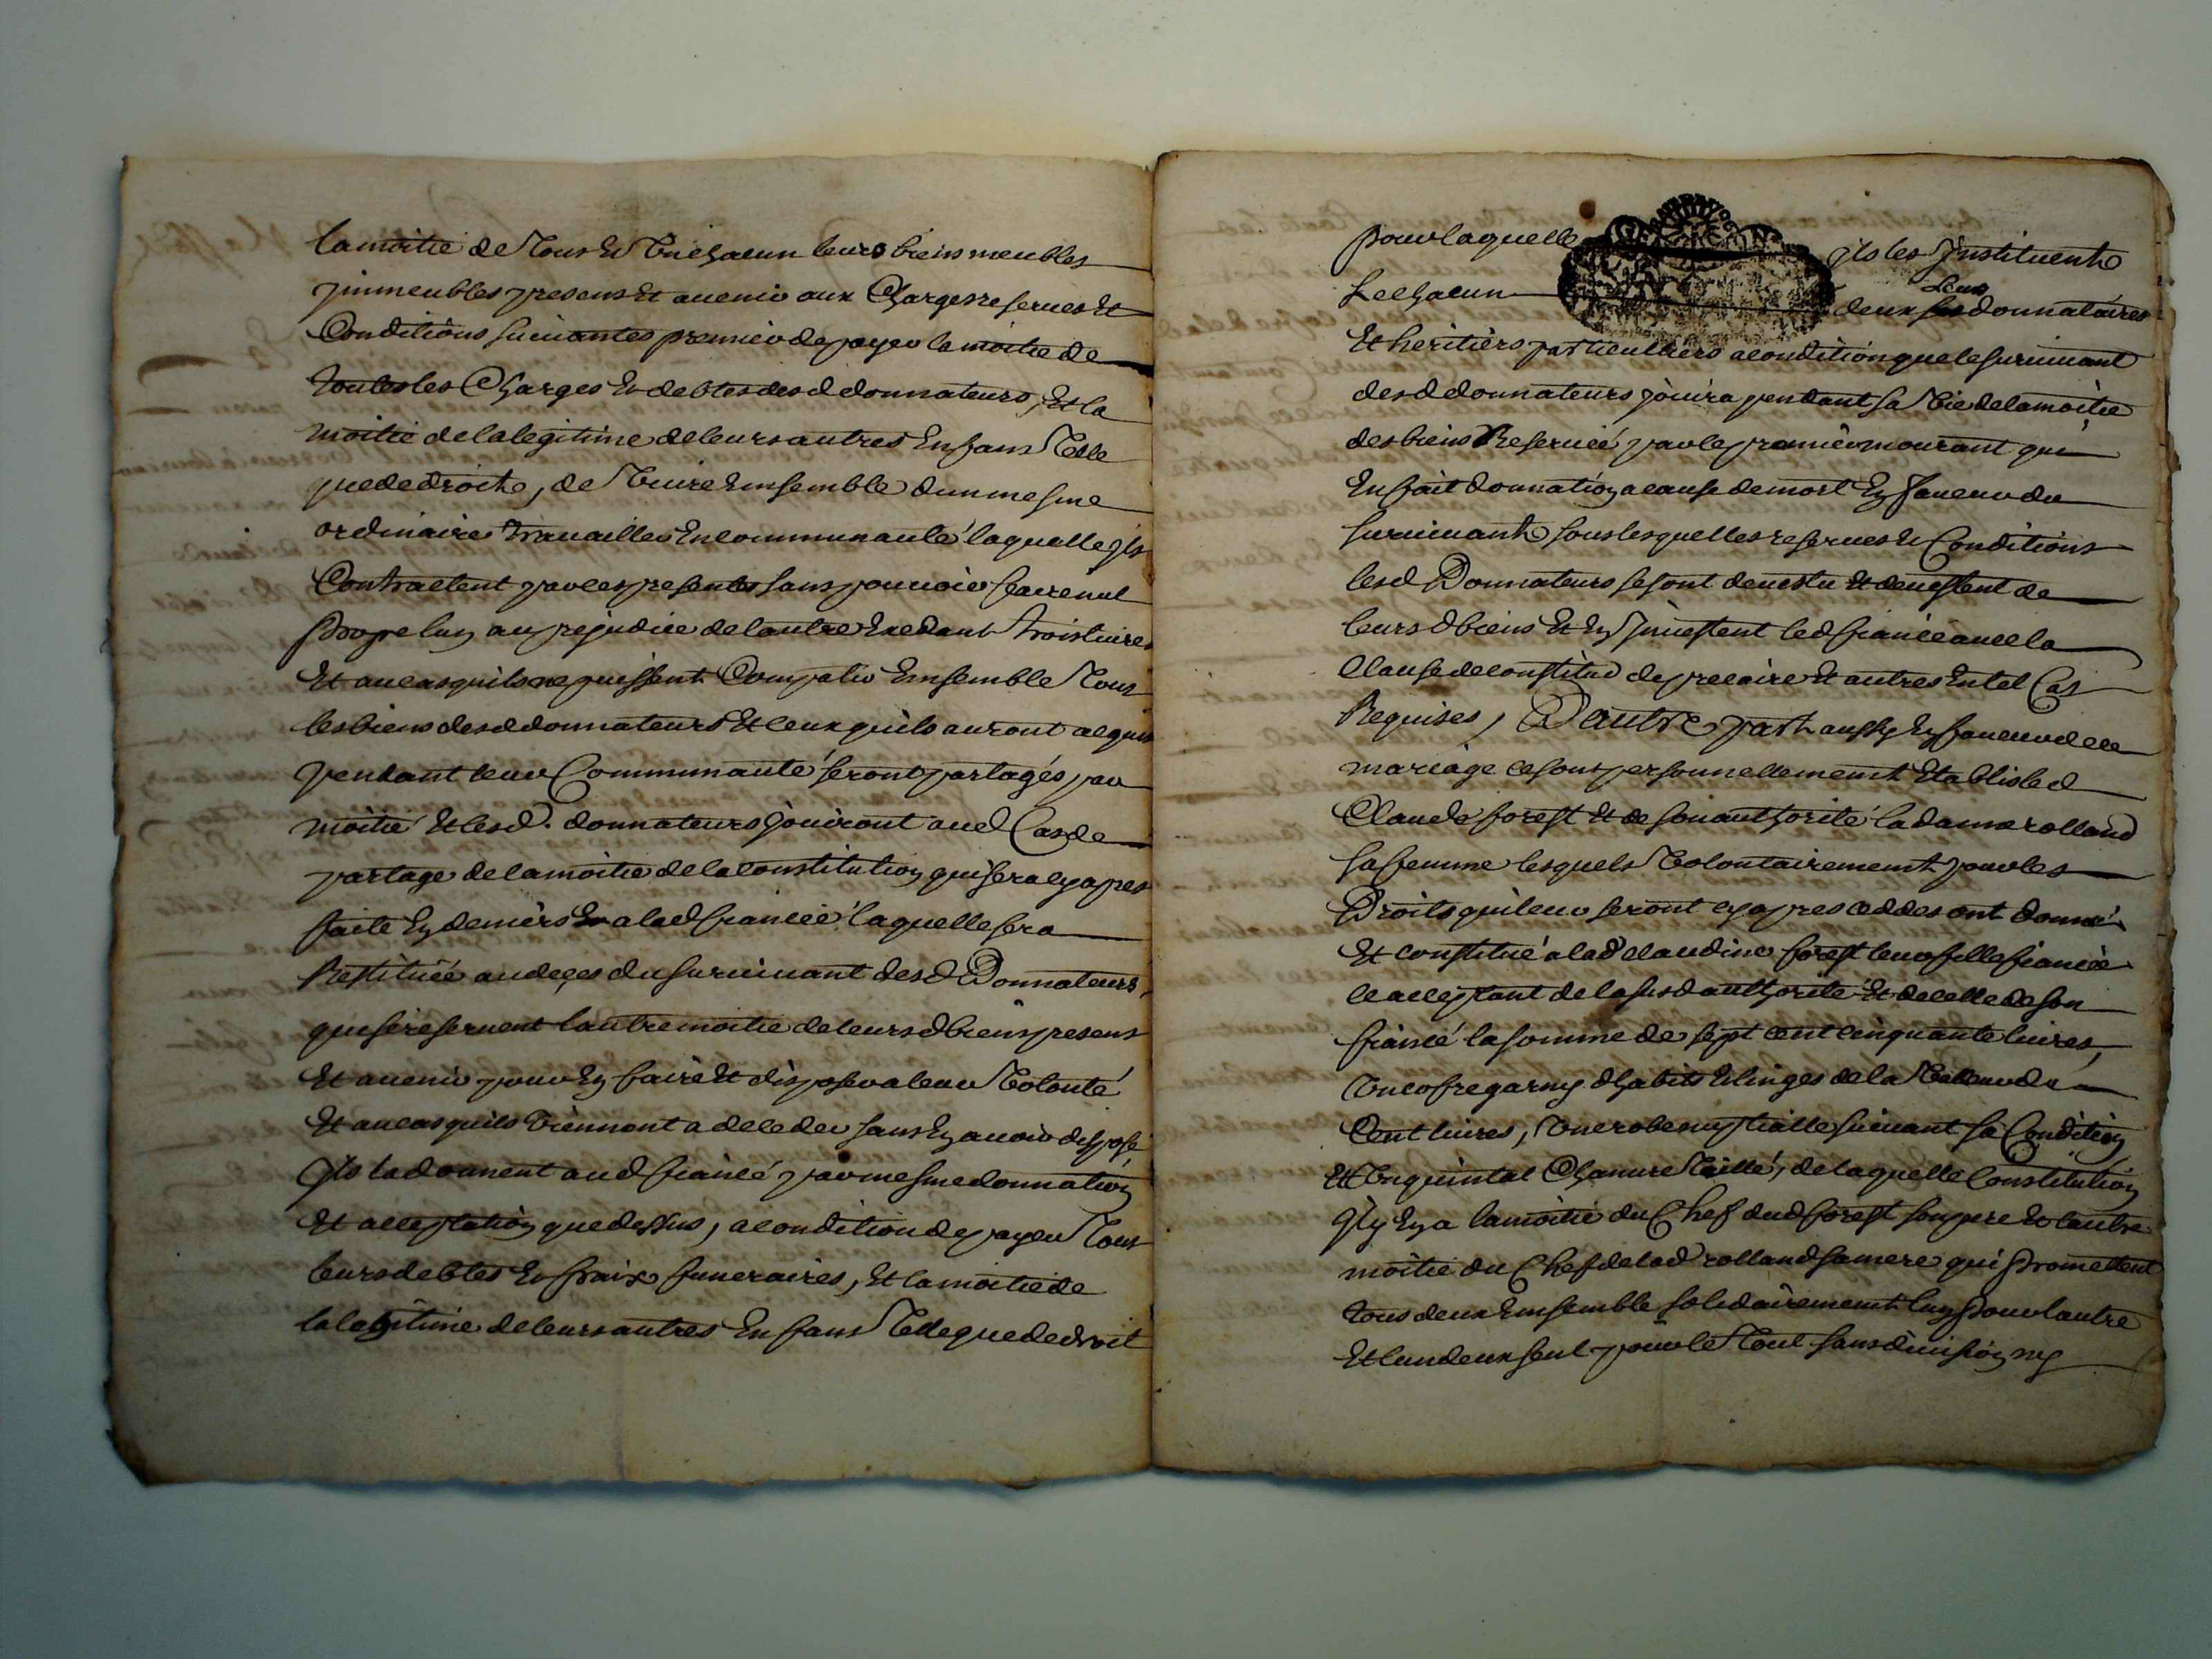 la moitié de tous Et un chacun leurs biens meubles
jmmeubles presens Et auenir aux Charges reserues Et
Conditions suiuantes premier de payer la moitie de
toutes les Charges Et debtes desd donnateurs, Et la
moitie de la legitime de leurs autres Enfans telle
que de droit, de viure Emsemble dun mesme
ordinaire trauailler En communauté laquelle jls
Contractent par ces presentes sans pouuoir faire nul
propre luy au prejudice de lautre Exedant trois liures
Et au cas quils ne puissent Compatir Emsemble tous
les biens desd donnateurs Et ceux quils auront acquis
pendant leur Communauté seront partagés par
moitié Et lesd. donnateurs jouiront aud Cas de
partage de la moitie de la Constitution qui sera cy apres
faite En deniers a lad fiancée laquelle sera
Restituée au deçes du suruiuant desd Donnateurs,
qui se reseruent lautre moitie de leursd biens presens
Et auenir pour En faire Et disposer a leur volonté
Et au cas quils viennent a deceder sans En auoir disposé
Jls la donnent aud fiancé par mesme donnation
Et acceptation que dessus, a condition de payer tous
leurs debtes Et fraix funeraires, Et la moitie de
la legitime de leurs autres Enfans telle que de droit
pour laquelle jls les Jnstituent
leur
deux ses donnataires
Et heritiers particulliers a condition que le suruiuant
desd donnateurs jouira pendant sa vie de la moitie
des biens Reserueé par le premier mourant qui
En fait donnation a cause de mort En faueur du
suruiuant sous lesquelles reserues Et Conditions
lesd Donnateurs se sont deuestu Et deuestent de
leursd biens Et En Jnuestent led fiancé auec la
Clause de constitud de precaire Et autres En tel Cas
Requises, D'autre part aussy En faueur de ce
mariage ce sont personnellement Etablis led
Claude forest Et de son authorité la dame rolland
sa femme lesquels volontairement pour les
Droits qui leur seront cy apres ceddes ont donné
Et constitué a lad claudine forest leur fille fiancée
le acceptant de la susd authorité Et de celle de son
fiancé la somme de sept cent cinquante liures,
vn cofre garny dhabits Et linges de la valleur de
Cent liures, vne robe nuptialle suiuant sa Condition
Et vn quintal Chanure taillé, de laquelle Constitution
Jl y En a la moitié du Chef dud forest son pere Et lautre
moitie du Chef de lad rolland sa mere qui promettent
tous deux Emsemble solidairement luy pour lautre
Et lun deux seul pour le tout sans diuision ny